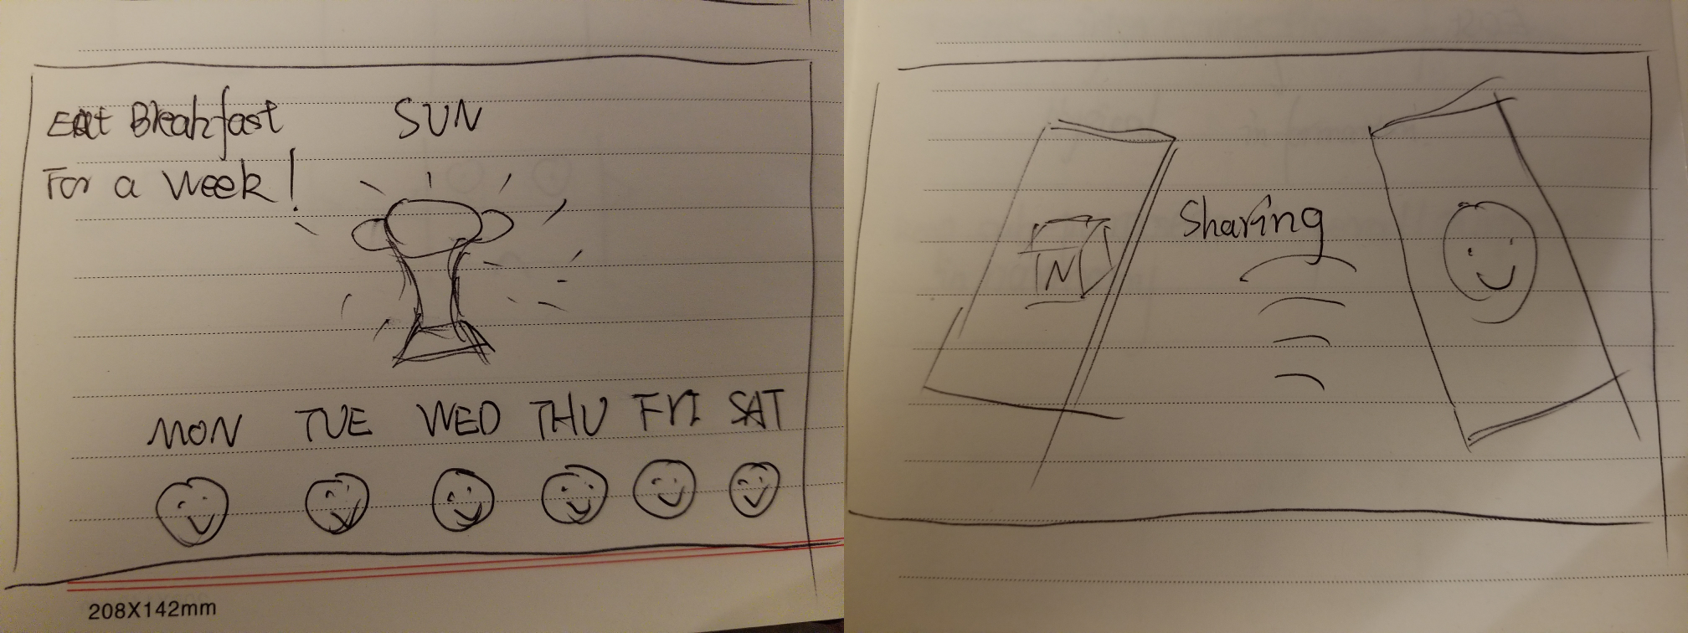 Eat Breakfast
For a week!
SUN
MON TUE WED THU Fri SAT
208X142mm
Sharing
N